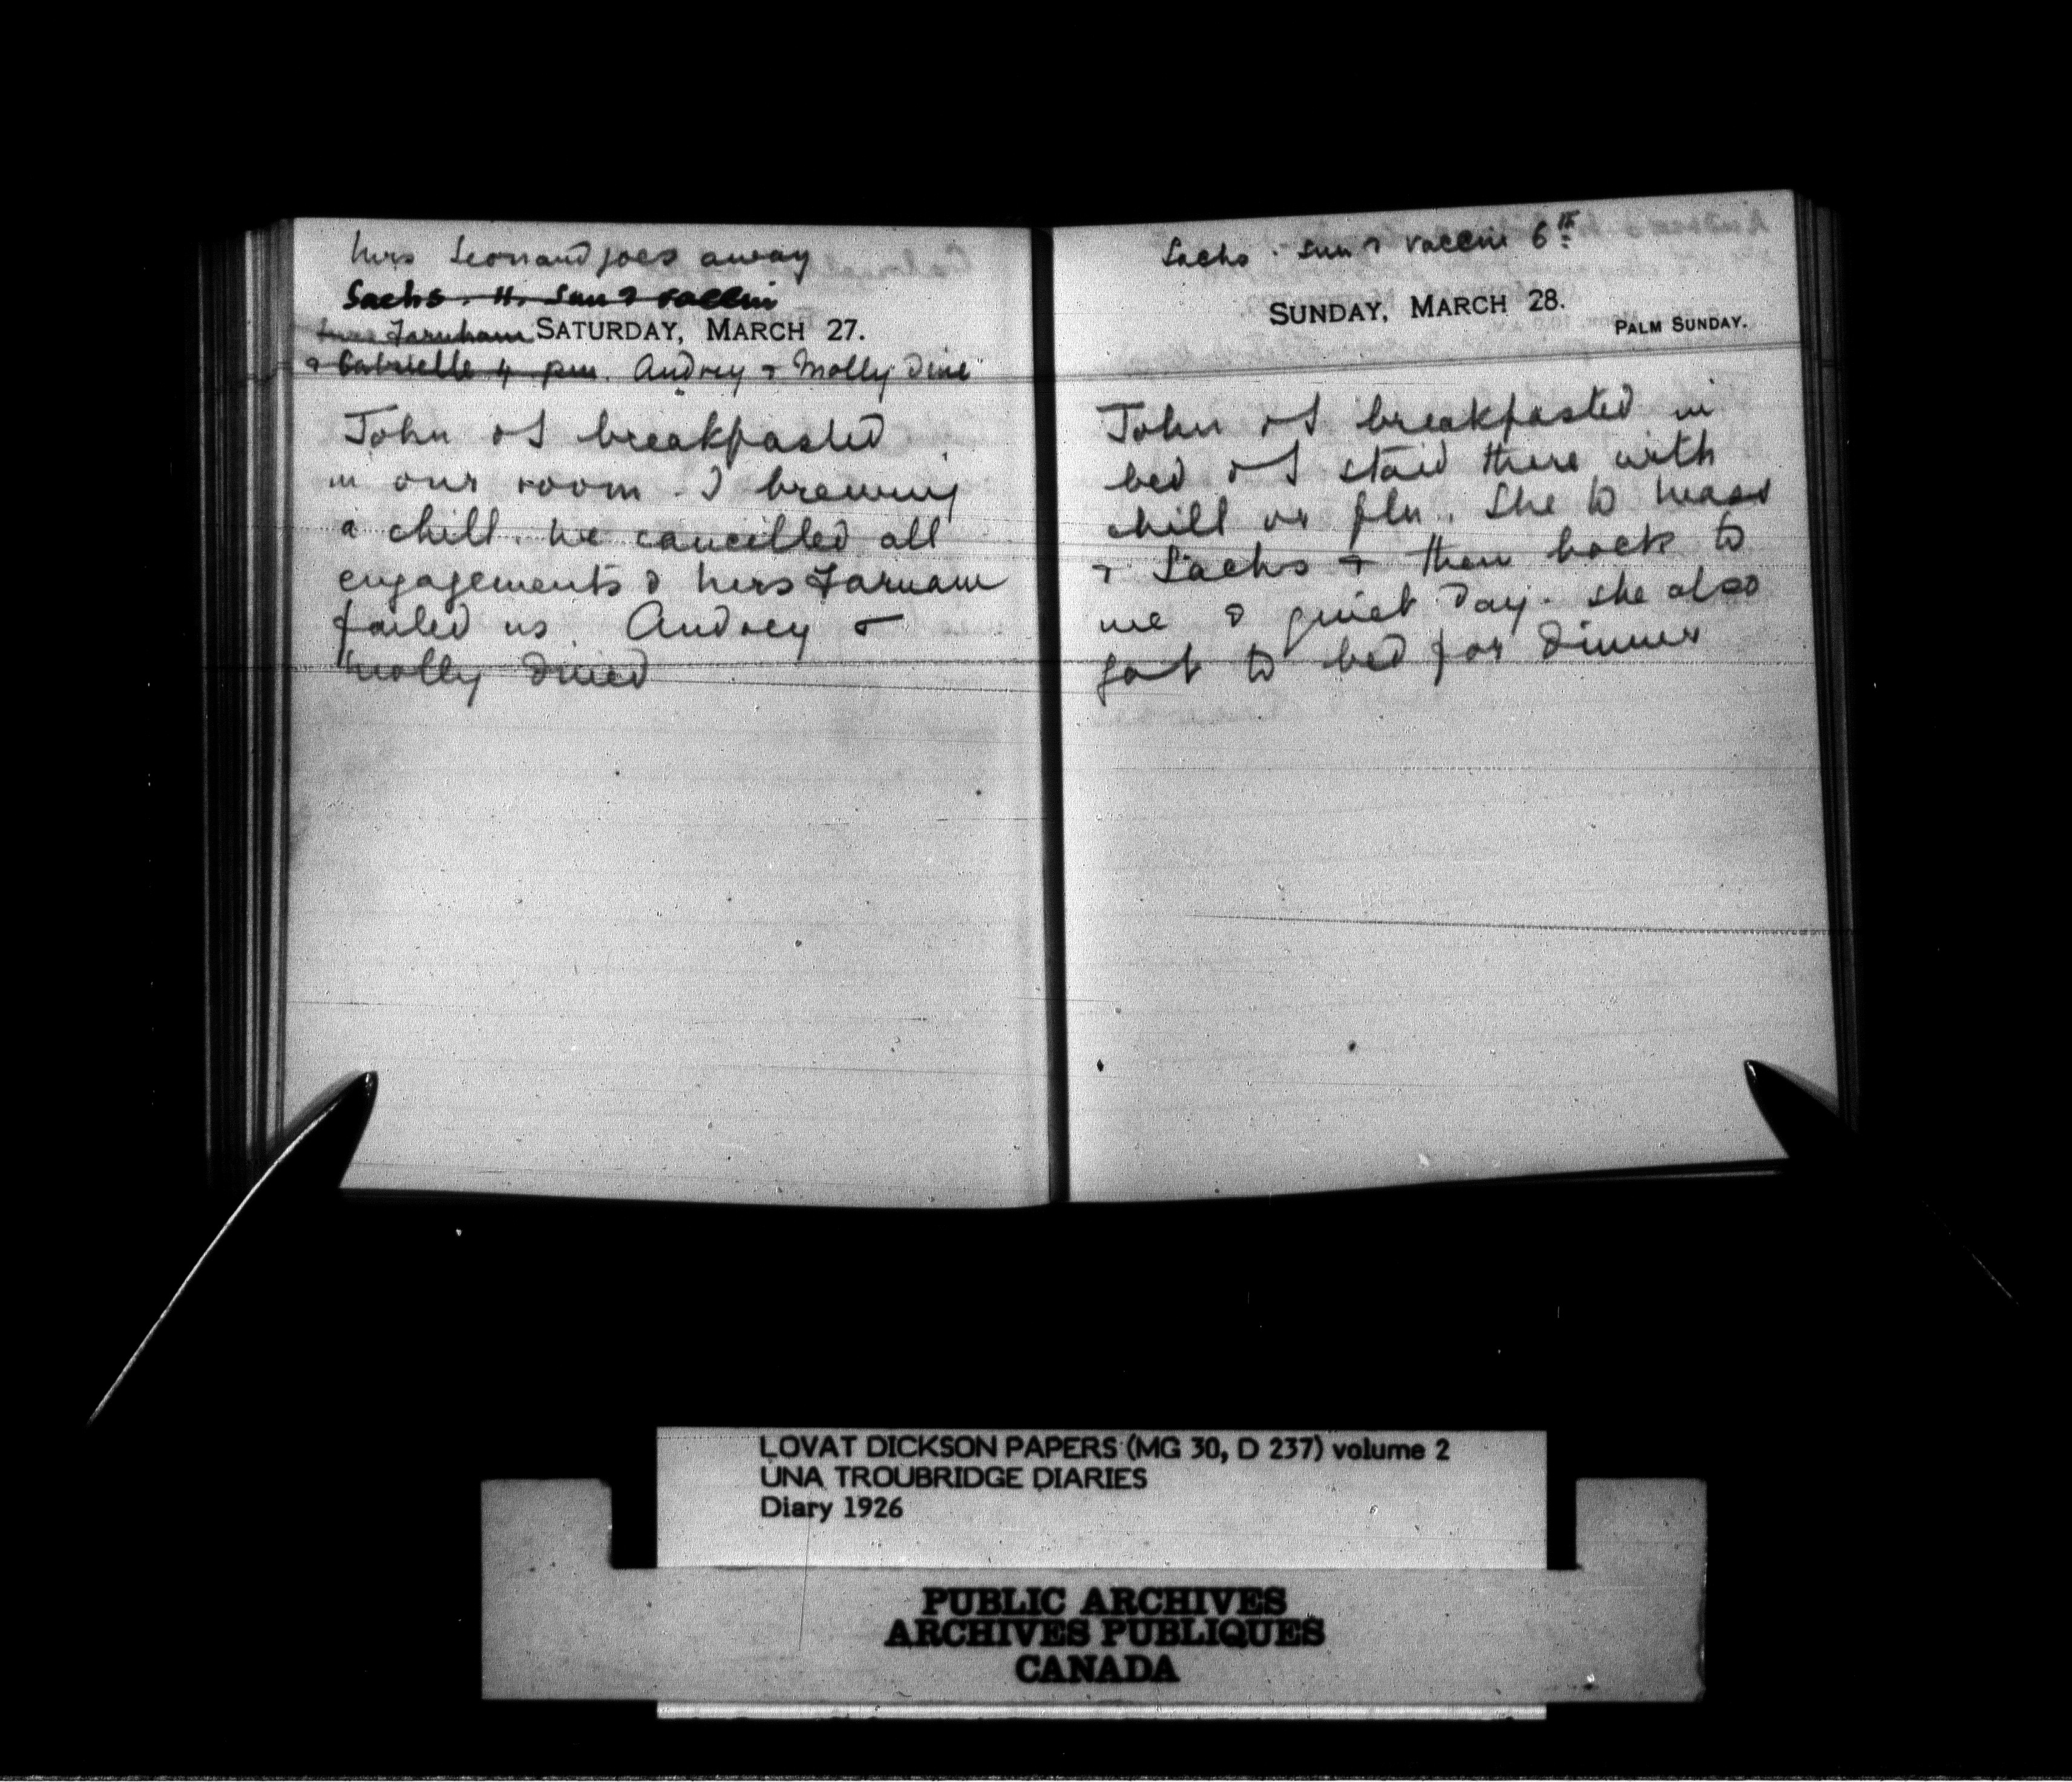 Mrs Leonard goes away
Sachs. 11. Sun & vaccin
Mrs Farnham SATURDAY, MARCH 27.
& Gabrielle 4 pm. Audrey & Molly dine
John & I breakfasted
in our room. I brewing
a chill. We cancelled all
engagements & Mrs Farnam
failed us. Audrey &
Molly dined
Sachs. Sun & vaccin 6th
SUNDAY, MARCH 28.
PALM SUNDAY.
John & I breakfasted in
bed & I staid there with
chill or flu. She to Mass
& Sachs & then back to
me & quiet day. She also
got to bed for dinner
LOVAT DICKSON PAPERS (MG 30, D 237) volume 2
UNA TROUBRIDGE DIARIES
Diary 1926
PUBLIC ARCHIVES
ARCHIVES PUBLIQUES
CANADA